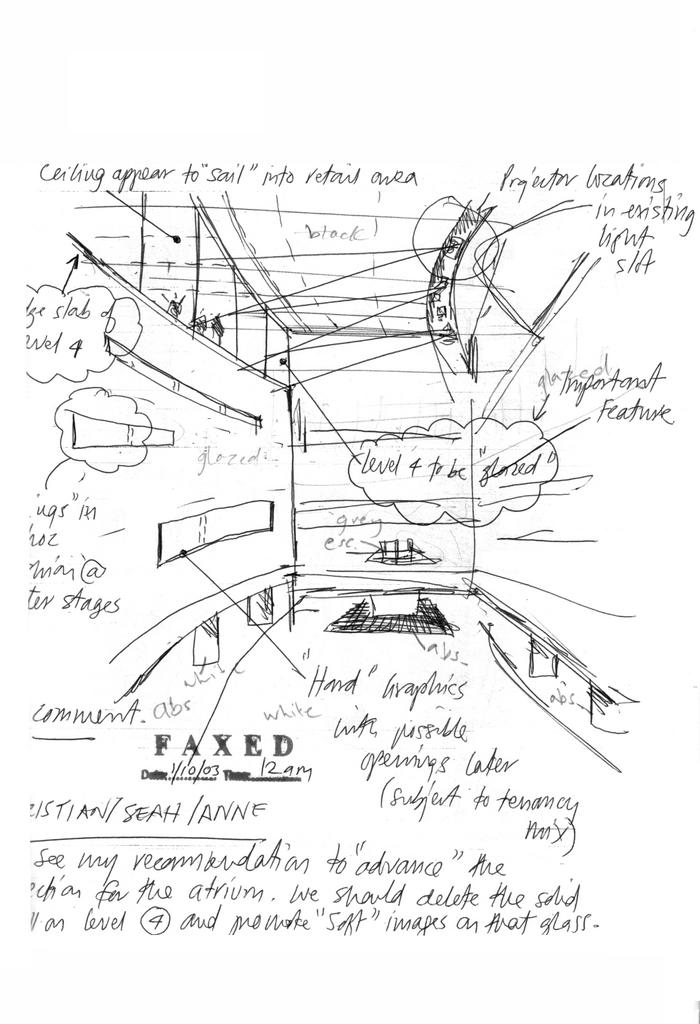 Ceiling appear to "sail" into retail area
Projector locations
in existing
light
slot
black
slab
level 4
glazed
Important
Feature
Level 4 to be "glazed"
glazed
grey
esc
ings" in
@
ter stages
abs
white
abs
white
abs
comment.
"Hard" Graphics
with possible
openings later
(subject to tenancy
mix)
FAXED
Date: 1/10/03 Time: 12am
ISTIAN/SEAH/ANNE
see my recommendation to "advance" the
ection for the atrium. We should delete the solid
on level 4 and promote "soft" images on that glass.